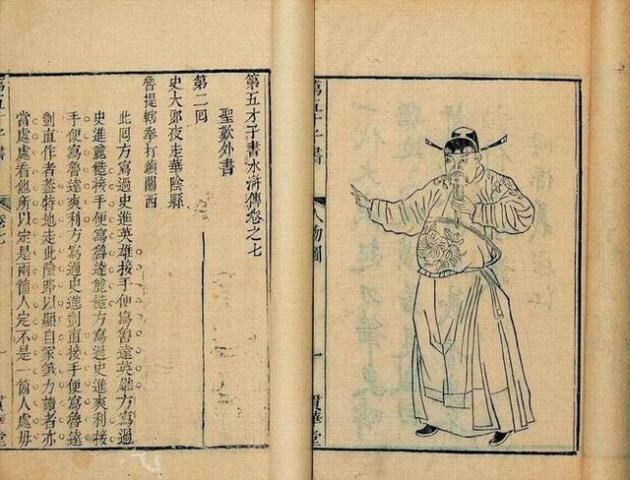 第五才子書
人物圖
一
貫華堂
第五才子書水滸傳卷之七
聖歎外書
第二回
史大郎夜走華陰縣
魯提轄拳打鎮關西
此回方寫過史進英雄接手便寫魯達英雄方寫過
史進麤糙接手便寫魯達麤糙方寫過史進爽利接
手便寫魯達爽利方寫過史進剴直接手便寫魯達
剴直作者蓋特地走此險路以顯自家筆力讀者亦
當處處看他所以定是兩箇人定不是一箇人處毋
第五才子書
卷七
一
貫華堂